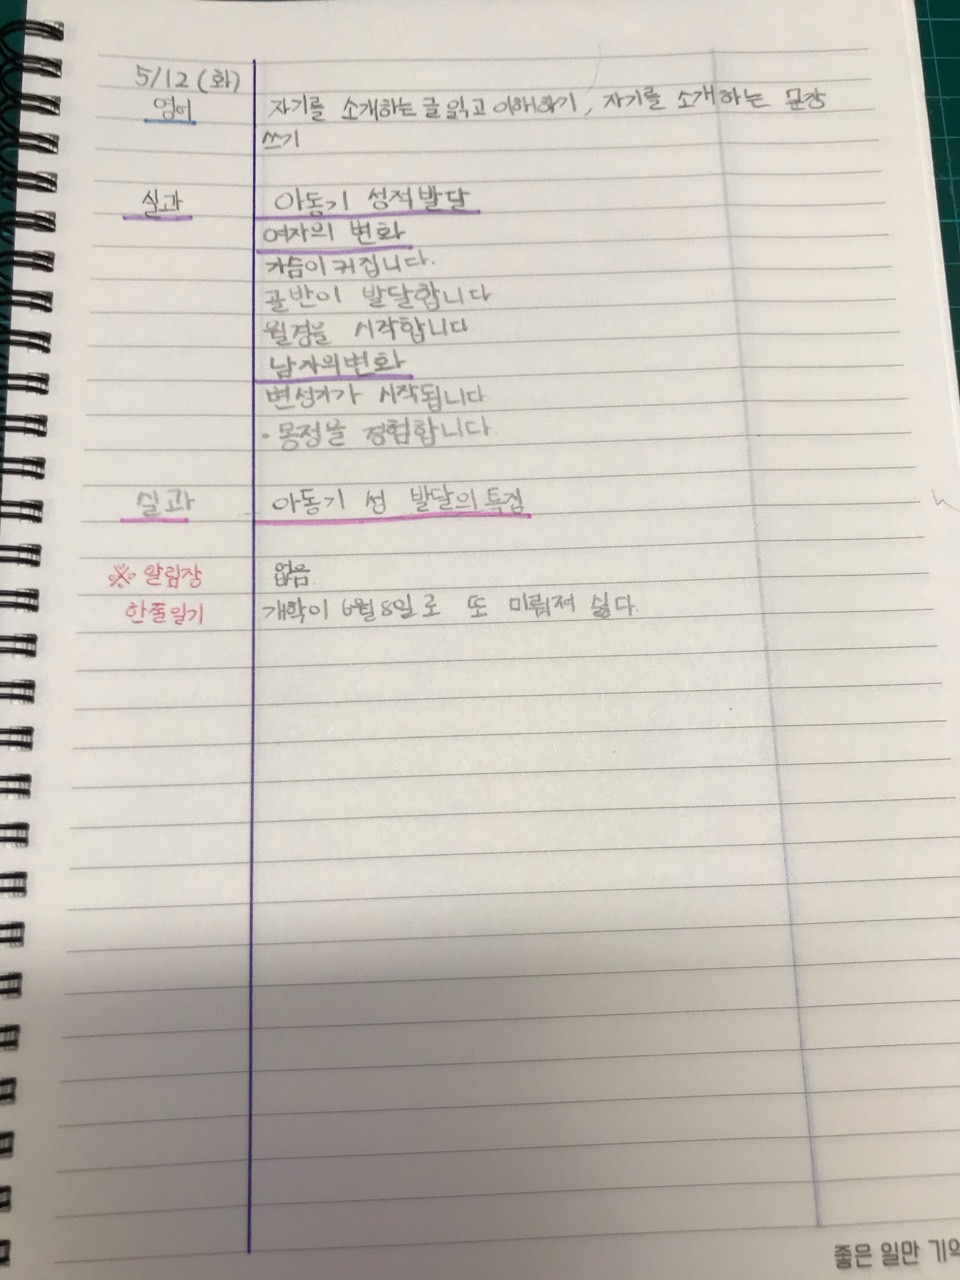 5/12 (화)
영어 자기를 소개하는 글 읽고 이해하기, 자기를 소개하는 문장
쓰기
실과 아동기 성적발달
여자의 변화
가슴이 커집니다.
골반이 발달합니다
월경을 시작합니다
남자의 변화
변성기가 시작됩니다
·몽정을 경험합니다
실과 아동기 성 발달의 특징
※ 알림장 없음
한줄일기 개학이 6월 8일로 또 미뤄져 싫다.
좋은 일만 기억